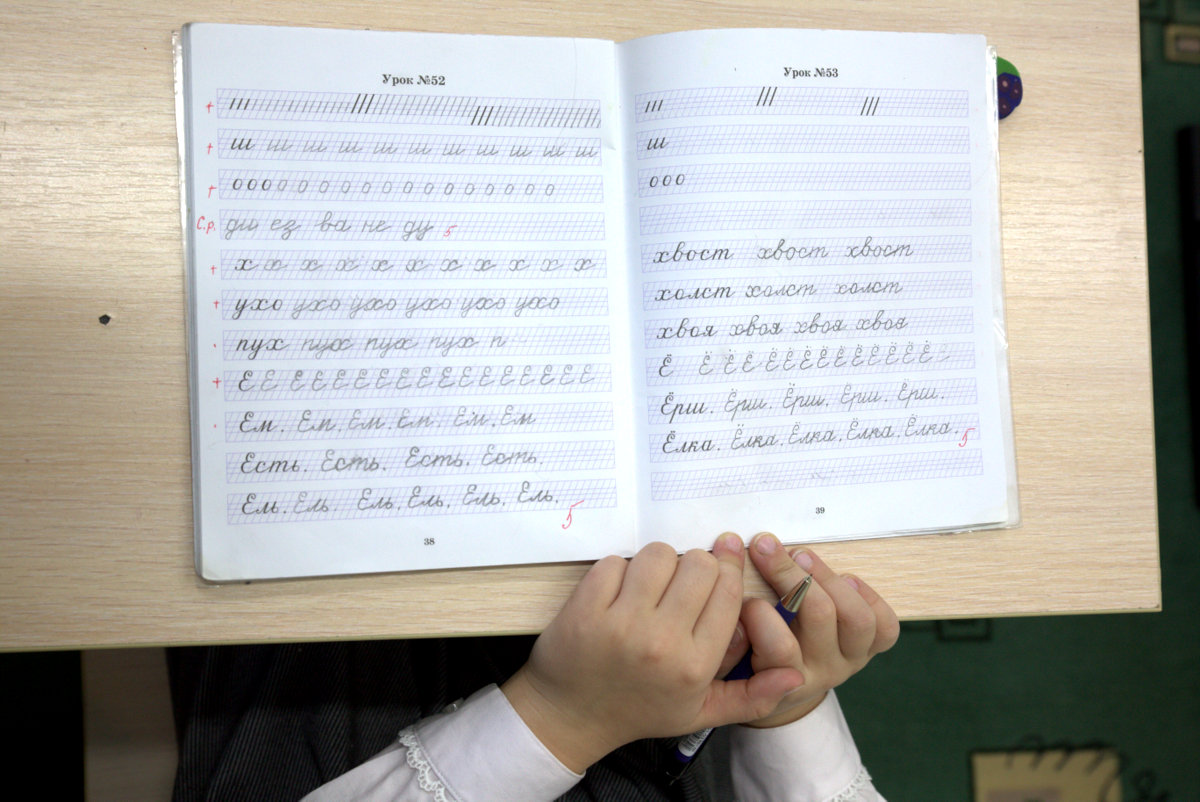 Урок №52
ш ш ш ш ш ш ш ш ш ш ш
о о о о о о о о о о о о о о о о о
С.р. ди ез ва не ду 5
х х х х х х х х х х х
ухо ухо ухо ухо ухо ухо
пух пух пух пух п
Е Е Е Е Е Е Е Е Е Е Е Е Е Е Е Е Е
Ем. Ем. Ем. Ем. Ем. Ем
Есть. Есть. Есть. Есть.
Ель. Ель. Ель. Ель. Ель. Ель.
5
38
Урок №53
ш
о о о
хвост хвост хвост
холст холст холст
хвоя хвоя хвоя хвоя
Ё Ё Ё Ё Ё Ё Ё Ё Ё Ё Ё Ё Ё
Ёрш. Ёрш. Ёрш. Ёрш. Ёрш.
Ёлка. Ёлка. Ёлка. Ёлка. Ёлка. 5
39